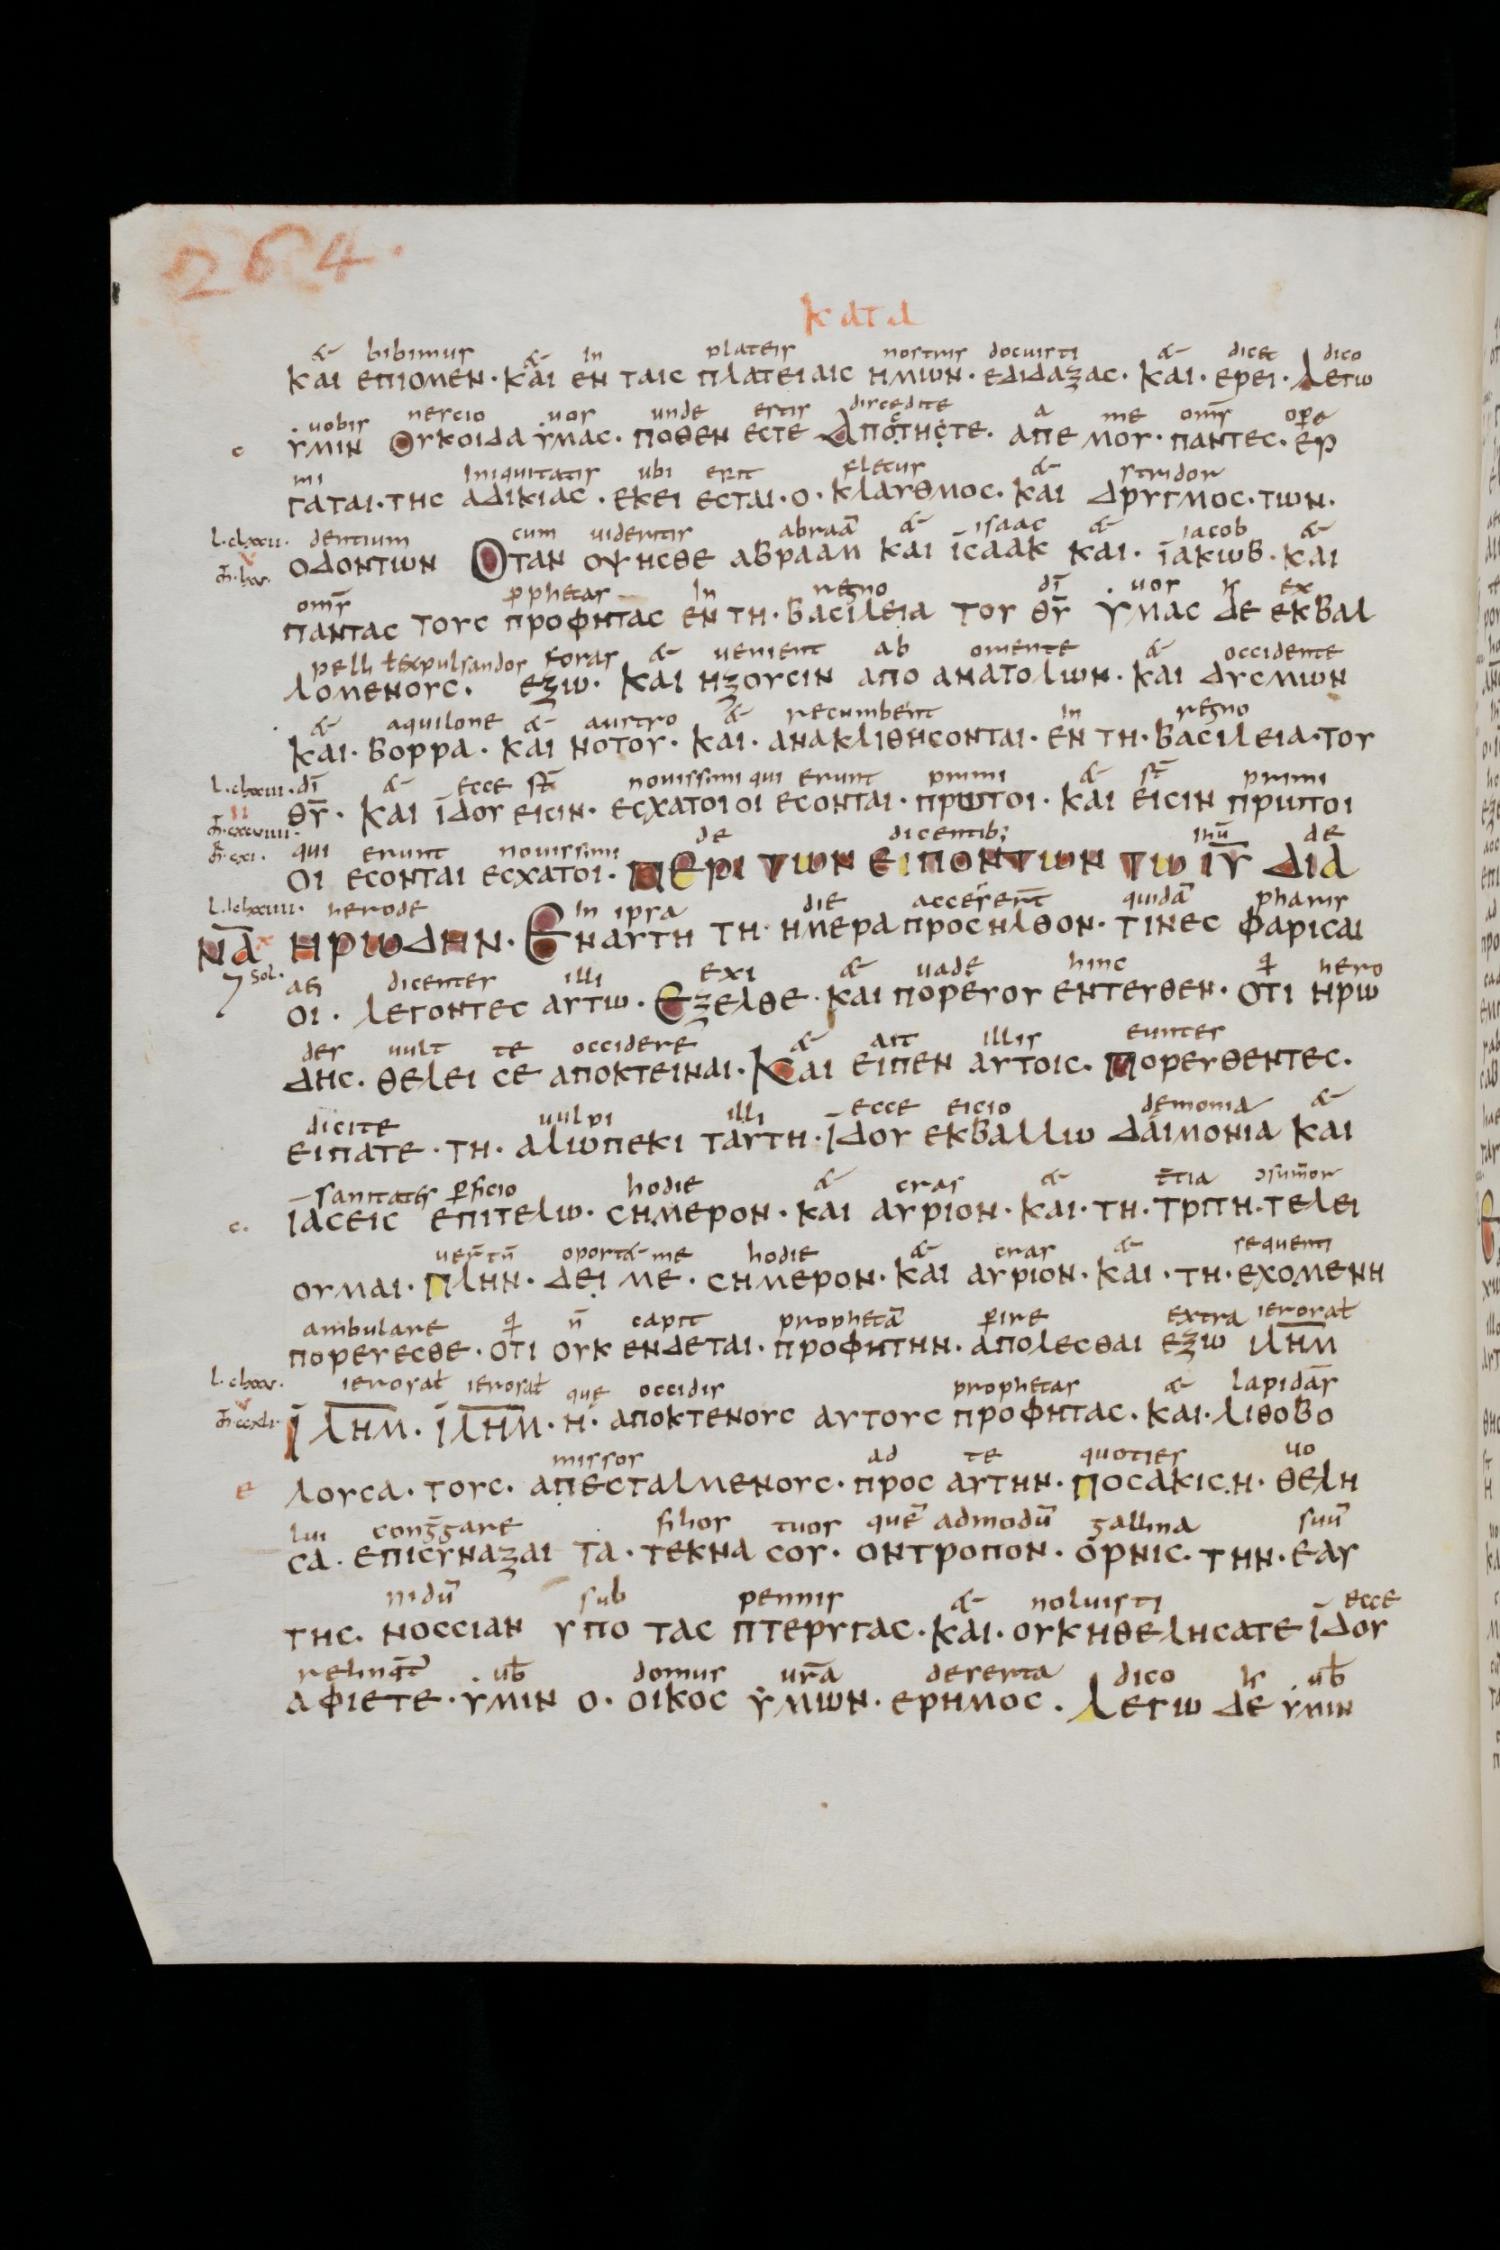 264.
ΚΑΤΑ
& bibimus & in plateis nostris docuisti & dicet dico
ΚΑΙ ΕΠΙΟΜΕΝ· ΚΑΙ ΕΝ ΤΑΙC ΠΛΑΤΕΙΑΙC ΗΜΙΩΝ· ΕΔΙΔΑΞΑC· ΚΑΙ· ΕΡΕΙ· ΛΕΓΩ
uobis nescio uos unde estis discedite a me om̅s opera
ΥΜΙΝ ΟΥΚΟΙΔΑ ΥΜΑC· ΠΟΘΕΝ ΕCΤΕ ΑΠΟΤΗCΤΕ· ΑΠΕ ΜΟΥ· ΠΑΝΤΕC· ΕΡ
ini iniquitatis ubi erit fletus & stridor
ΓΑΤΑΙ· ΤΗC ΑΔΙΚΙΑC· ΕΚΕΙ ΕCΤΑΙ· Ο· ΚΛΑΥΘΜΟC· ΚΑΙ ΔΡΥΓΜΟC· ΤΩΝ·
dentium cum uidentis abraā & isaac & iacob &
ΟΔΟΝΤΩΝ ΟΤΑΝ ΟΨΗCΘΕ ΑΒΡΑΑΜ ΚΑΙ ΙCΑΑΚ ΚΑΙ· ΙΑΚΩΒ· ΚΑΙ
om̅s pphetas in regno di̅ uos ex
ΠΑΝΤΑC ΤΟΥC ΠΡΟΦΗΤΑC ΕΝ ΤΗ· ΒΑCΙΛΕΙΑ ΤΟΥ Θ̅Υ̅ ΥΜΑC ΔΕ ΕΚΒΑΛ
pelli ł expulsandos foras & uenient ab oriente & occidente
ΛΟΜΕΝΟΥC· ΕΞΩ· ΚΑΙ ΗΞΟΥCΙΝ ΑΠΟ ΑΝΑΤΟΛΩΝ· ΚΑΙ ΔΥCΜΩΝ
& aquilone & austro & recumbent in regno
ΚΑΙ· ΒΟΡΡΑ· ΚΑΙ ΝΟΤΟΥ· ΚΑΙ· ΑΝΑΚΛΙΘΗCΟΝΤΑΙ· ΕΝ ΤΗ· ΒΑCΙΛΕΙΑ· ΤΟΥ
di̅ & ecce st̅ nouissimi qui erunt primi & st̅ primi
Θ̅Υ̅· ΚΑΙ ΙΔΟΥ ΕΙCΙΝ· ΕCΧΑΤΟΙ ΟΙ ΕCΟΝΤΑΙ· ΠΡΩΤΟΙ· ΚΑΙ ΕΙCΙΝ ΠΡΩΤΟΙ
qui erunt nouissimi de dicentib; ihū de
ΟΙ ΕCΟΝΤΑΙ ΕCΧΑΤΟΙ· ΠΕΡΙ ΤΩΝ ΕΙΠΟΝΤΩΝ ΤΩ Ι̅Υ̅ ΔΙΑ
herode in ipsa die accesser̅t quidā pharis
ΝΑ ΗΡΩΔΗΝ· ΕΝΑΥΤΗ ΤΗ· ΗΜΕΡΑ ΠΡΟCΗΛΘΟΝ· ΤΙΝΕC ΦΑΡΙCΑΙ
aei dicentes illi exi & uade hinc hero
ΟΙ· ΛΕΓΟΝΤΕC ΑΥΤΩ· ΕΞΕΛΘΕ· ΚΑΙ ΠΟΡΕΥΟΥ ΕΝΤΕΥΘΕΝ· ΟΤΙ ΗΡΩ
des uult te occidere & ait illis euntes
ΔΗC· ΘΕΛΕΙ CΕ ΑΠΟΚΤΕΙΝΑΙ· ΚΑΙ ΕΙΠΕΝ ΑΥΤΟΙC· ΠΟΡΕΥΘΕΝΤΕC·
dicite uulpi illi ecce eicio demonia &
ΕΙΠΑΤΕ· ΤΗ· ΑΛΩΠΕΚΙ ΤΑΥΤΗ· ΙΔΟΥ ΕΚΒΑΛΛΩ ΔΑΙΜΟΝΙΑ ΚΑΙ
sanitates ꝑficio hodie & cras & t̅tia ɔsum̅or
ΙΑCΕΙC ΕΠΙΤΕΛΩ· CΗΜΕΡΟΝ· ΚΑΙ ΑΥΡΙΟΝ· ΚΑΙ· ΤΗ· ΤΡΙΤΗ· ΤΕΛΕΙ
uer̅tn̅ oport& me hodie & cras & sequenti
ΟΥΜΑΙ· ΠΛΗΝ· ΔΕΙ ΜΕ· CΗΜΕΡΟΝ· ΚΑΙ ΑΥΡΙΟΝ· ΚΑΙ· ΤΗ· ΕΧΟΜΕΝΗ
ambulare n̅ capit prophetā ꝑire extra ierosał
ΠΟΡΕΥΕCΘΕ· ΟΤΙ ΟΥΚ ΕΝΔΕΤΑΙ· ΠΡΟΦΗΤΗΝ· ΑΠΟΛΕCΘΑΙ ΕΞΩ ΙΛΗ̅Μ̅
ierosał ierosał que occidis prophetas & lapidās
ΙΛΗ̅Μ̅· ΙΛΗ̅Μ̅· Η· ΑΠΟΚΤΕΝΟΥC ΑΥΤΟΥC ΠΡΟΦΗΤΑC· ΚΑΙ· ΛΙΘΟΒΟ
missos ad te quoties uo
ΛΟΥCΑ· ΤΟΥC· ΑΠΕCΤΑΛΜΕΝΟΥC· ΠΡΟC ΑΥΤΗΝ· ΠΟCΑΚΙC· Η· ΘΕΛΗ
lui cong̅gare filios tuos quē admodū gallina suū
CΑ· ΕΠΙCΥΝΑΞΑΙ ΤΑ· ΤΕΚΝΑ CΟΥ· ΟΝΤΡΟΠΟΝ· ΟΡΝΙC· ΤΗΝ· ΕΑΥ
nidū sub pennis & noluisti ecce
ΤΗC· ΝΟCCΙΑΝ ΥΠΟ ΤΑC ΠΤΕΡΥΓΑC· ΚΑΙ· ΟΥΚΗΘΕΛΗCΑΤΕ ΙΔΟΥ
relinq̅t̅ ub̅ domus ur̅a deserta dico ub̅
ΑΦΙΕΤΕ· ΥΜΙΝ Ο· ΟΙΚΟC ΥΜΩΝ· ΕΡΗΜΟC· ΛΕΓΩ ΔΕ ΥΜΙΝ